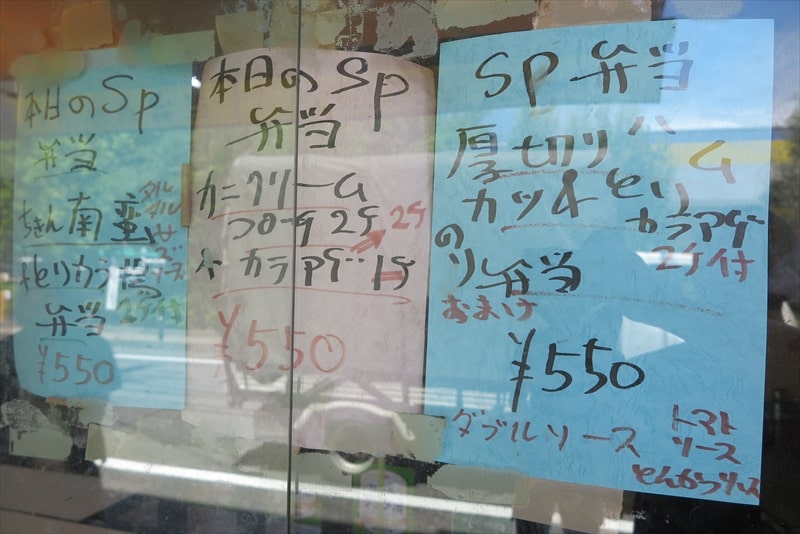 本日のSp
弁当
ちきん南蛮
タルタル
弁当
¥550
本日のSp
弁当
カニクリーム
コロッケ2ケ
カラアゲ
2ケ
¥550
SP弁当
厚切りハム
カツ&とり
カラアゲ
2ケ付
のり弁当
おまけ
¥550
ダブルソース
トマト
ソース
とんかつソース